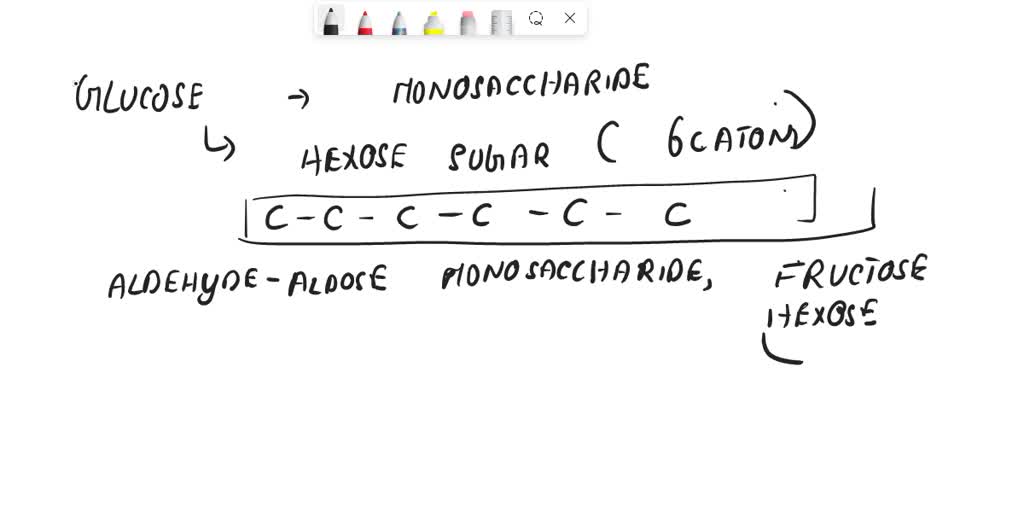 GLUCOSE → MONOSACCHARIDE
↳ HEXOSE SUGAR ( 6C ATOMS)
C - C - C - C - C - C
ALDEHYDE - ALDOSE MONOSACCHARIDE, FRUCTOSE
HEXOSE